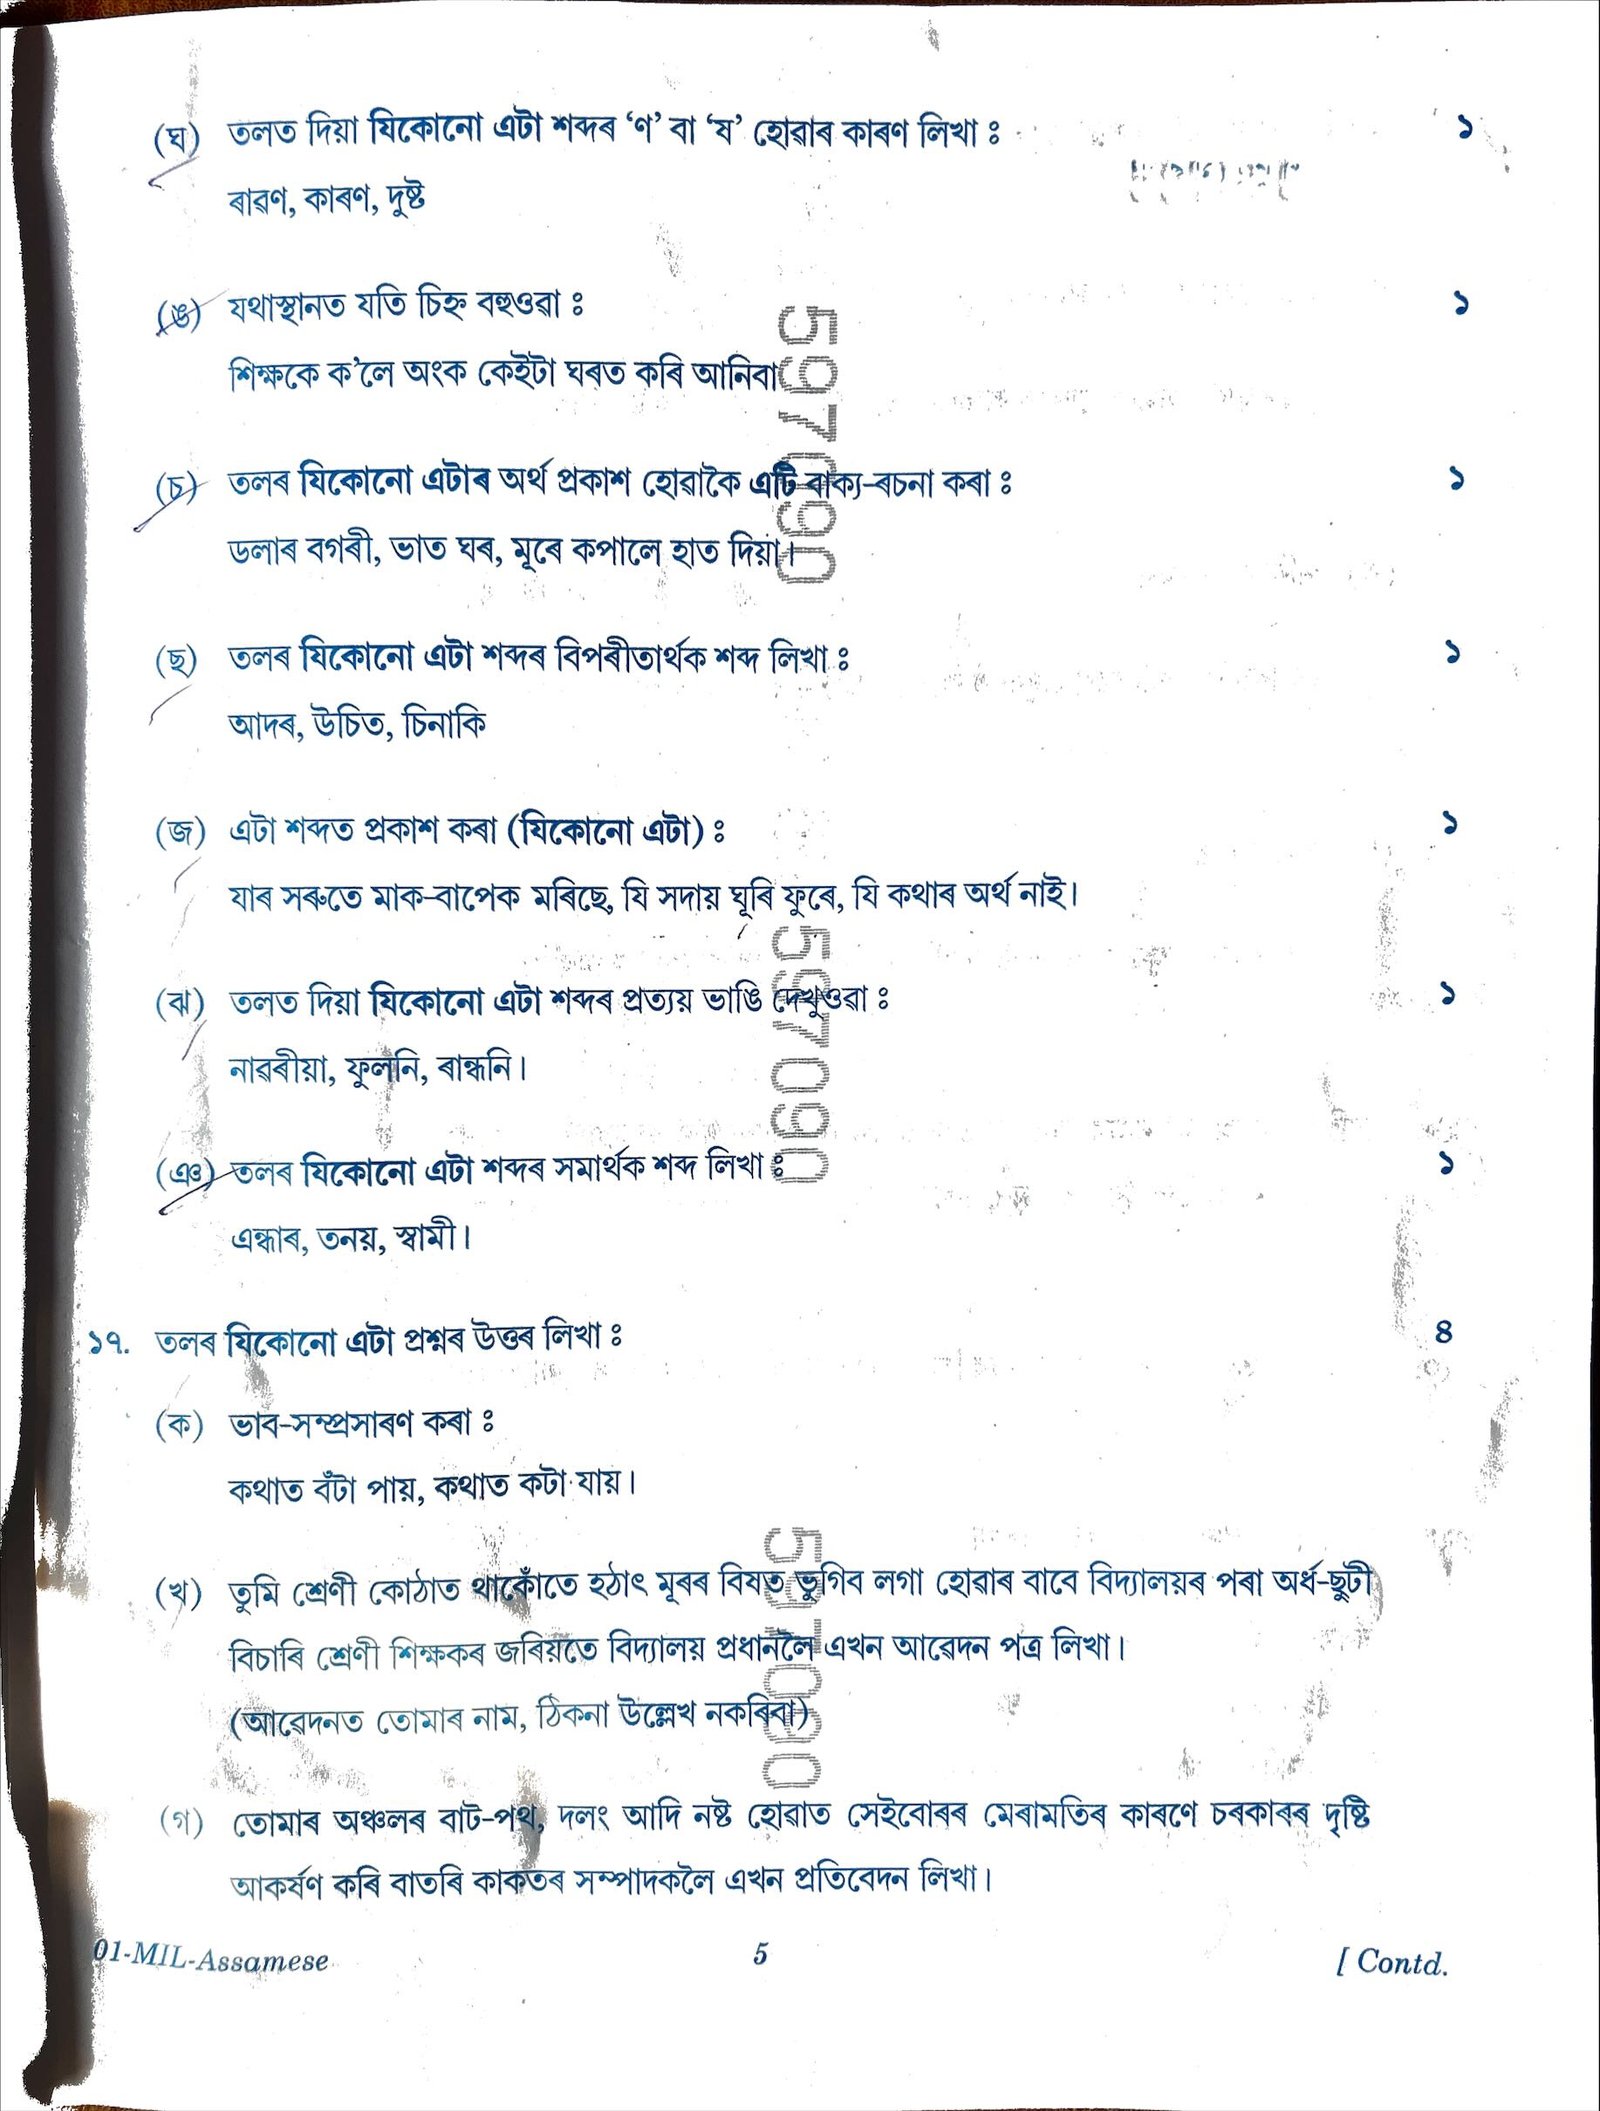 (ঘ) তলত দিয়া যিকোনো এটা শব্দৰ ‘ণ’ বা ‘ষ’ হোৱাৰ কাৰণ লিখা ঃ ১
ৰাৱণ, কাৰণ, দুষ্ট
(ঙ) যথাস্থানত যতি চিহ্ন বহুওৱা ঃ ১
শিক্ষকে ক’লে অংক কেইটা ঘৰত কৰি আনিবা
(চ) তলৰ যিকোনো এটাৰ অৰ্থ প্ৰকাশ হোৱাকৈ এটি বাক্য-ৰচনা কৰা ঃ ১
ডলাৰ বগৰী, ভাত ঘৰ, মূৰে কপালে হাত দিয়া।
(ছ) তলৰ যিকোনো এটা শব্দৰ বিপৰীতাৰ্থক শব্দ লিখা ঃ ১
আদৰ, উচিত, চিনাকি
(জ) এটা শব্দত প্ৰকাশ কৰা (যিকোনো এটা) ঃ ১
যাৰ সৰুতে মাক-বাপেক মৰিছে, যি সদায় ঘূৰি ফুৰে, যি কথাৰ অৰ্থ নাই।
(ঝ) তলত দিয়া যিকোনো এটা শব্দৰ প্ৰত্যয় ভাঙি দেখুওৱা ঃ ১
নাৱৰীয়া, ফুলনি, ৰান্ধনি।
(ঞ) তলৰ যিকোনো এটা শব্দৰ সমাৰ্থক শব্দ লিখা ঃ ১
এন্ধাৰ, তনয়, স্বামী।
১৭. তলৰ যিকোনো এটা প্ৰশ্নৰ উত্তৰ লিখা ঃ ৪
(ক) ভাব-সম্প্ৰসাৰণ কৰা ঃ
কথাত বঁটা পায়, কথাত কটা যায়।
(খ) তুমি শ্ৰেণী কোঠাত থাকোঁতে হঠাৎ মূৰৰ বিষত ভুগিব লগা হোৱাৰ বাবে বিদ্যালয়ৰ পৰা অৰ্ধ-ছুটী
বিচাৰি শ্ৰেণী শিক্ষকৰ জৰিয়তে বিদ্যালয় প্ৰধানলৈ এখন আৱেদন পত্ৰ লিখা।
(আৱেদনত তোমাৰ নাম, ঠিকনা উল্লেখ নকৰিবা)
(গ) তোমাৰ অঞ্চলৰ বাট-পথ, দলং আদি নষ্ট হোৱাত সেইবোৰৰ মেৰামতিৰ কাৰণে চৰকাৰৰ দৃষ্টি
আকৰ্ষণ কৰি বাতৰি কাকতৰ সম্পাদকলৈ এখন প্ৰতিবেদন লিখা।
01-MIL-Assamese 5 [ Contd.